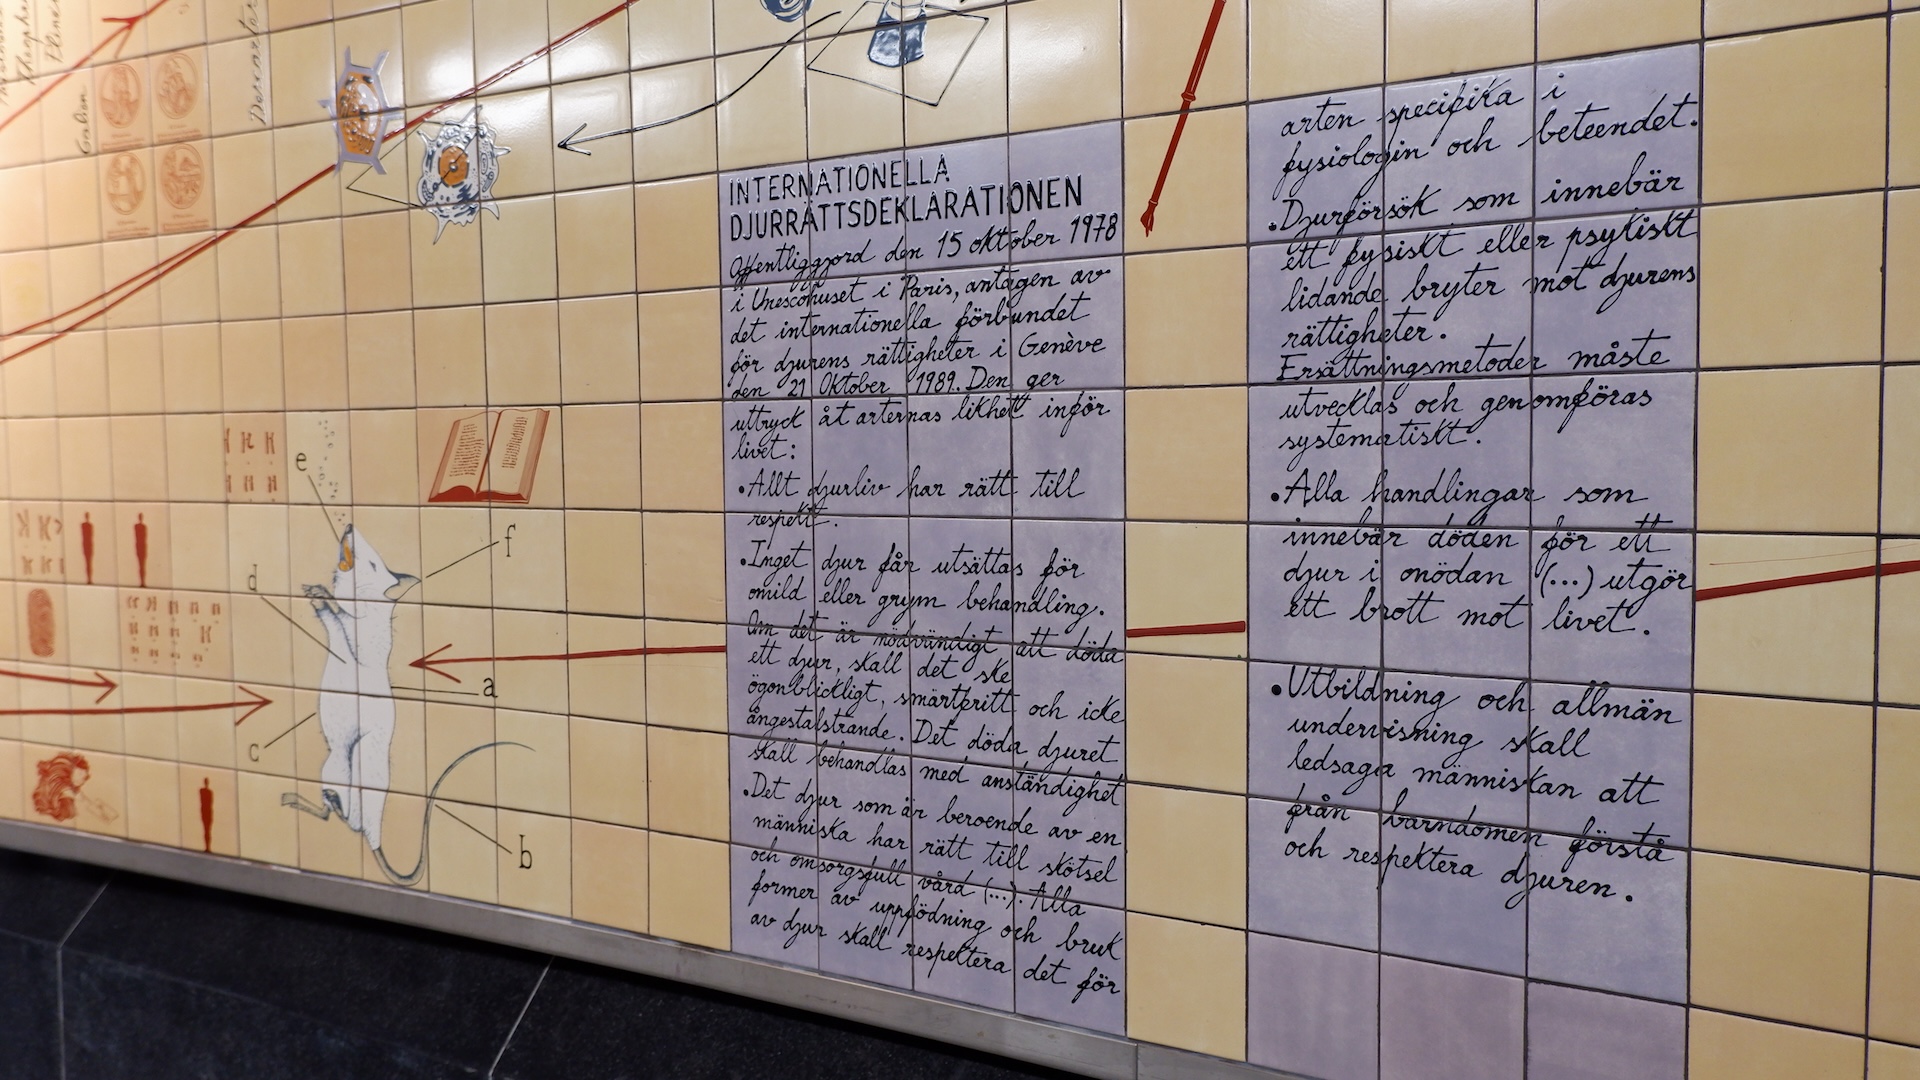 Galen
Descartes
INTERNATIONELLA
DJURRÄTTSDEKLARATIONEN
Offentliggjord den 15 oktober 1978
i Unescohuset i Paris, antagen av
det internationella förbundet
för djurens rättigheter i Genève
den 21 Oktober 1989. Den ger
uttryck åt arternas likhet inför
livet:
•Allt djurliv har rätt till
respekt.
•Inget djur får utsättas för
omild eller grym behandling.
Om det är nödvändigt att döda
ett djur, skall det ske
ögonblickligt, smärtfritt och icke
ångestalstrande. Det döda djuret
skall behandlas med anständighet
•Det djur som är beroende av en
människa har rätt till skötsel
och omsorgsfull vård (...). Alla
former av uppfödning och bruk
av djur skall respektera det för
arten specifika i
fysiologin och beteendet.
•Djurförsök som innebär
ett fysiskt eller psykiskt
lidande bryter mot djurens
rättigheter.
Ersättningsmetoder måste
utvecklas och genomföras
systematiskt.
•Alla handlingar som
innebär döden för ett
djur i onödan (...) utgör
ett brott mot livet.
•Utbildning och allmän
undervisning skall
ledsaga människan att
från barndomen förstå
och respektera djuren.
e
f
d
a
c
b